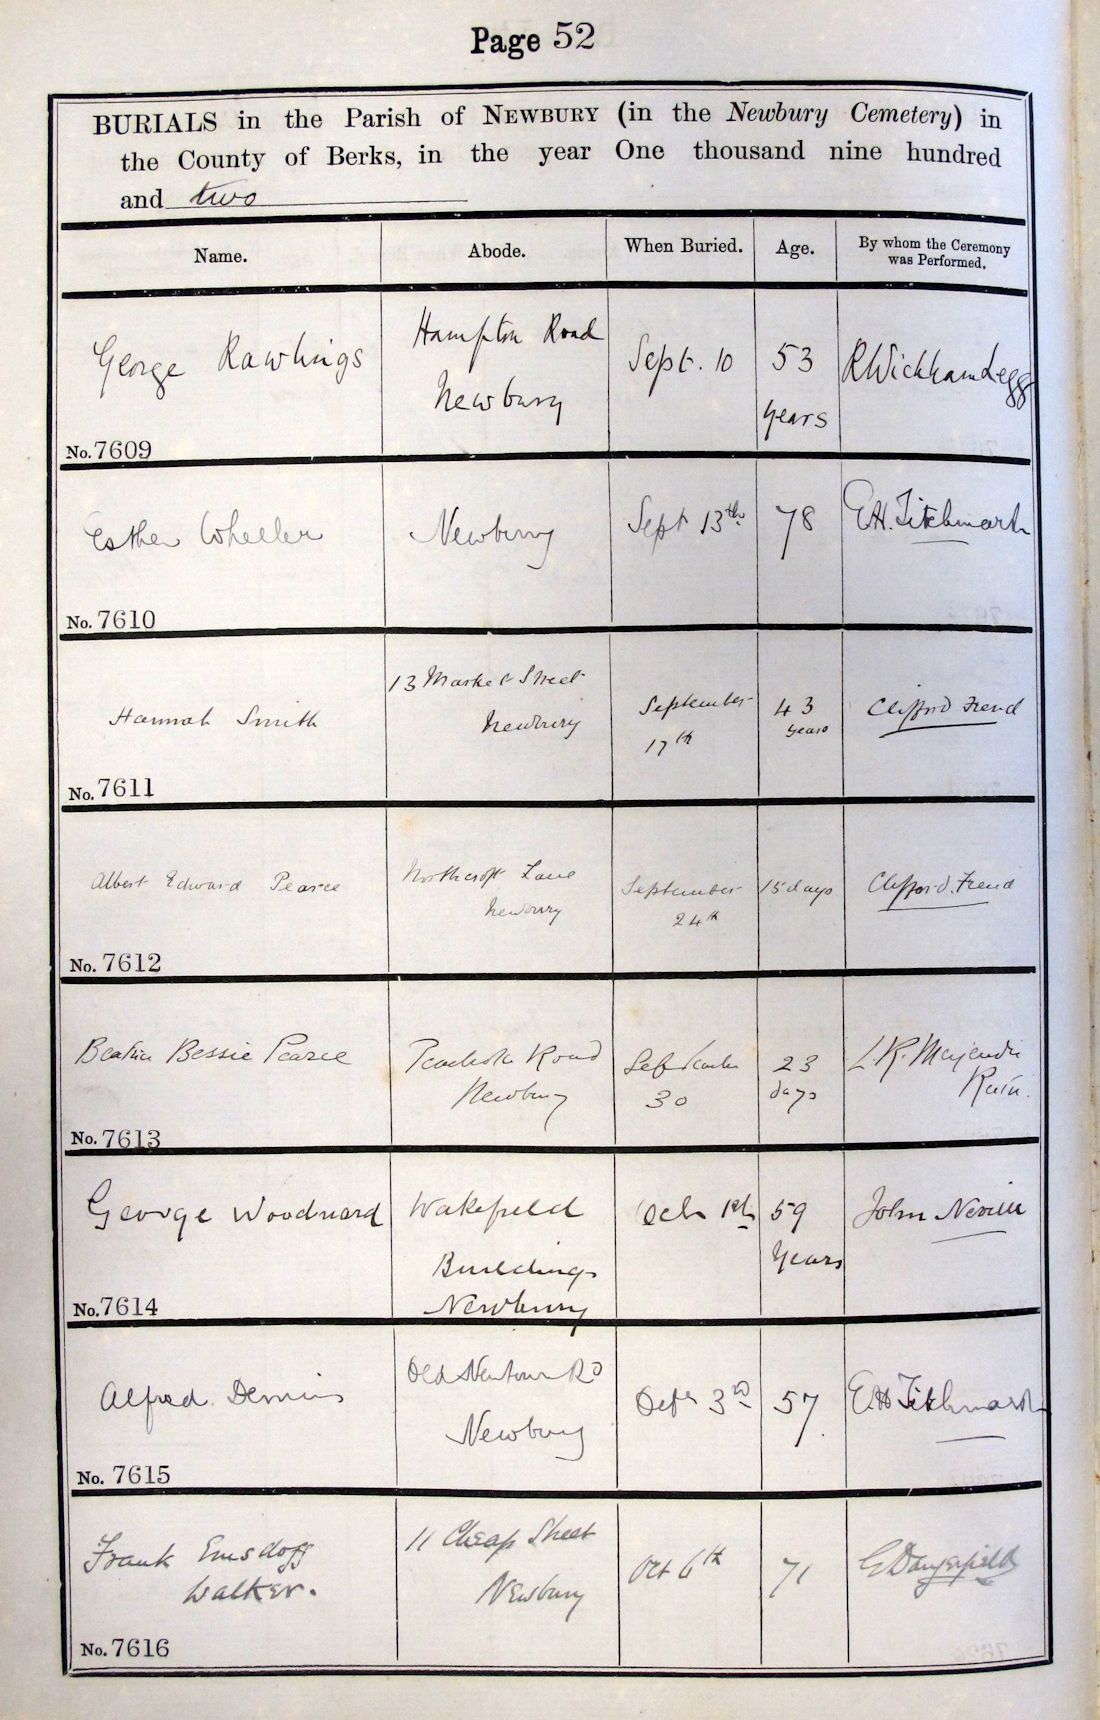 Page 52
BURIALS in the Parish of NEWBURY (in the Newbury Cemetery) in
the County of Berks, in the year One thousand nine hundred
and two
Name.
Abode.
When Buried.
Age.
By whom the Ceremony
was Performed.
George Rawlings
Hampton Road
Newbury
Sept. 10
53
years
R Wickham Legg
No. 7609
Esther Wheeler
Newbury
Sept 13th
78
E.H. Titchmarsh
No. 7610
Hannah Smith
13 Market Street
Newbury
September
17th
43
years
Clifford Frend
No. 7611
Albert Edward Pearce
Northcroft Lane
Newbury
September
24th
15 days
Clifford Frend
No. 7612
Bessie Pearce
Road
Newbury
September
30
23
days
L.R. Majendie
No. 7613
George Woodward
Wakefield
Buildings
Newbury
Oct 1st
59
Years
John Nevill
No. 7614
Alfred Dennis
Old Newtown Rd
Newbury
Oct 3rd
57
E.H. Titchmarsh
No. 7615
Frank
Walker.
11 Cheap Street
Newbury
Oct 6th
71
G Dangerfield
No. 7616